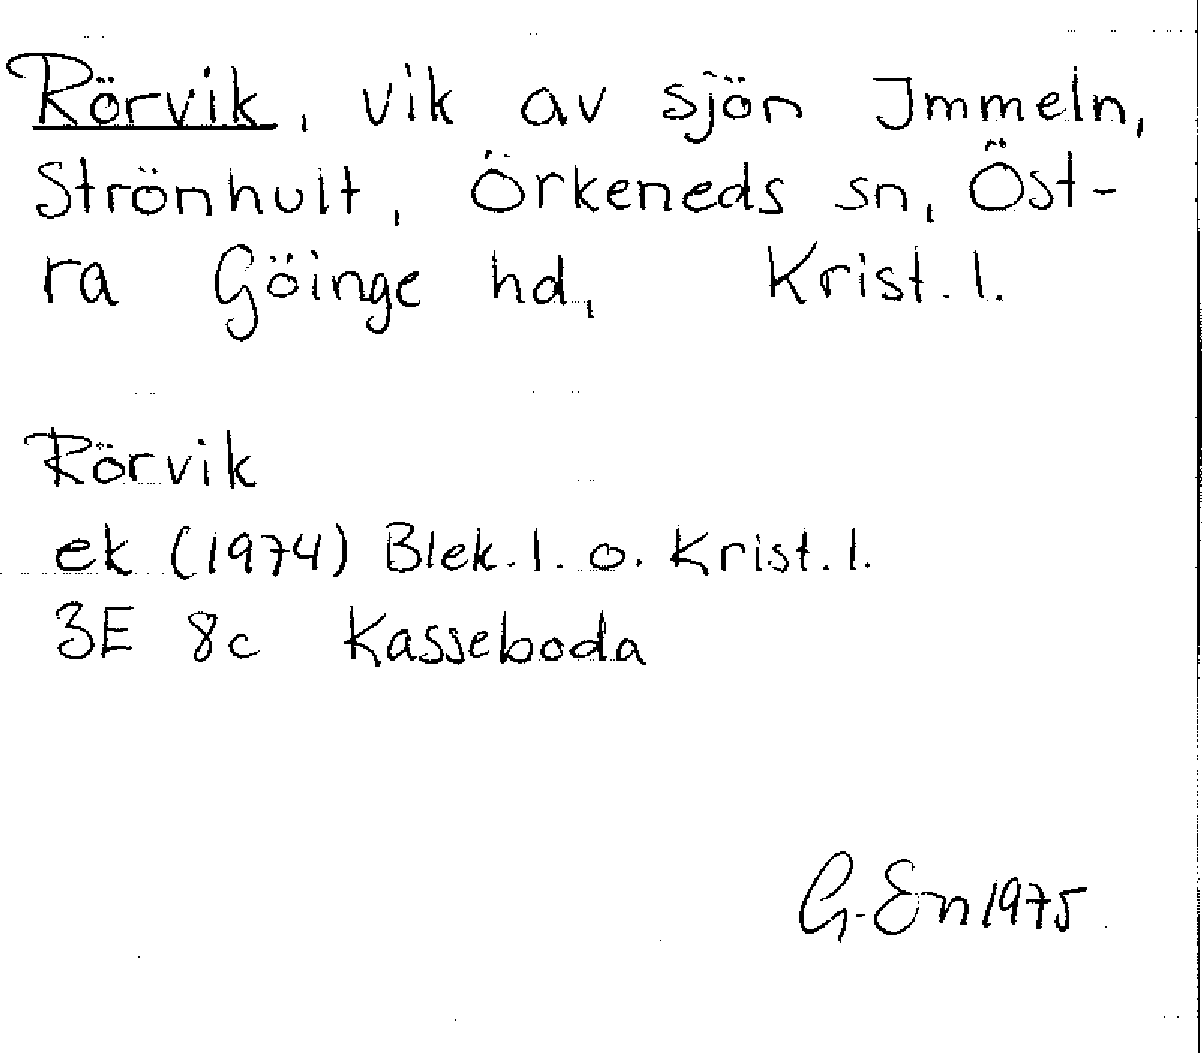 Rörvik, vik av sjön Immeln,
Strönhult, Örkeneds sn, Öst-
ra Göinge hd, Krist. l.
Rörvik
ek (1974) Blek. l. o. Krist. l.
3E 8c Kasseboda
G. En 1975